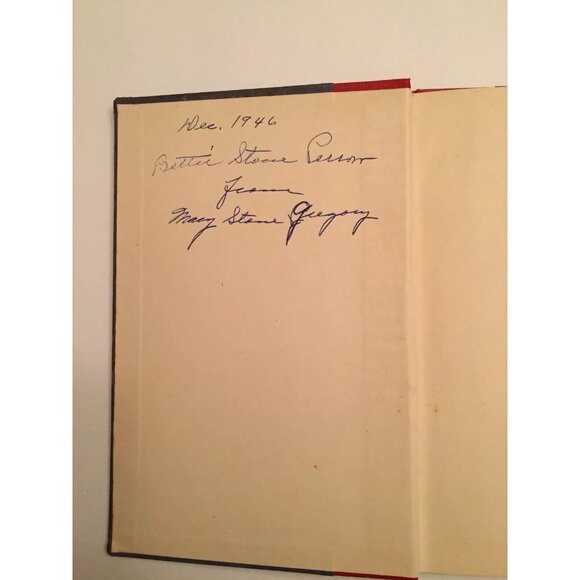 Dec. 1946
Bettie Stone Person
from
Mary Stone Gregory